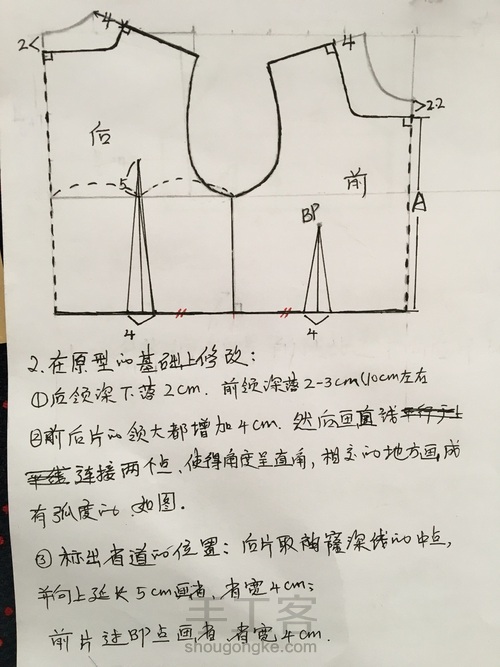 4
2
4
2.2
后
前
5
BP
A
4
4
2. 在原型的基础上修改：
①后领深下落2cm. 前领深落2-3cm(10cm左右
②前后片的领大都增加4cm. 然后画直线
连接两个点、使得角度呈直角，相交的地方画成
有弧度的. 如图.
③标出省道的位置：后片取胸窿深线的中点，
并向上延长5cm画省，省宽4cm；
前片过BP点画省，省宽4cm.
手工客
shougongke.com